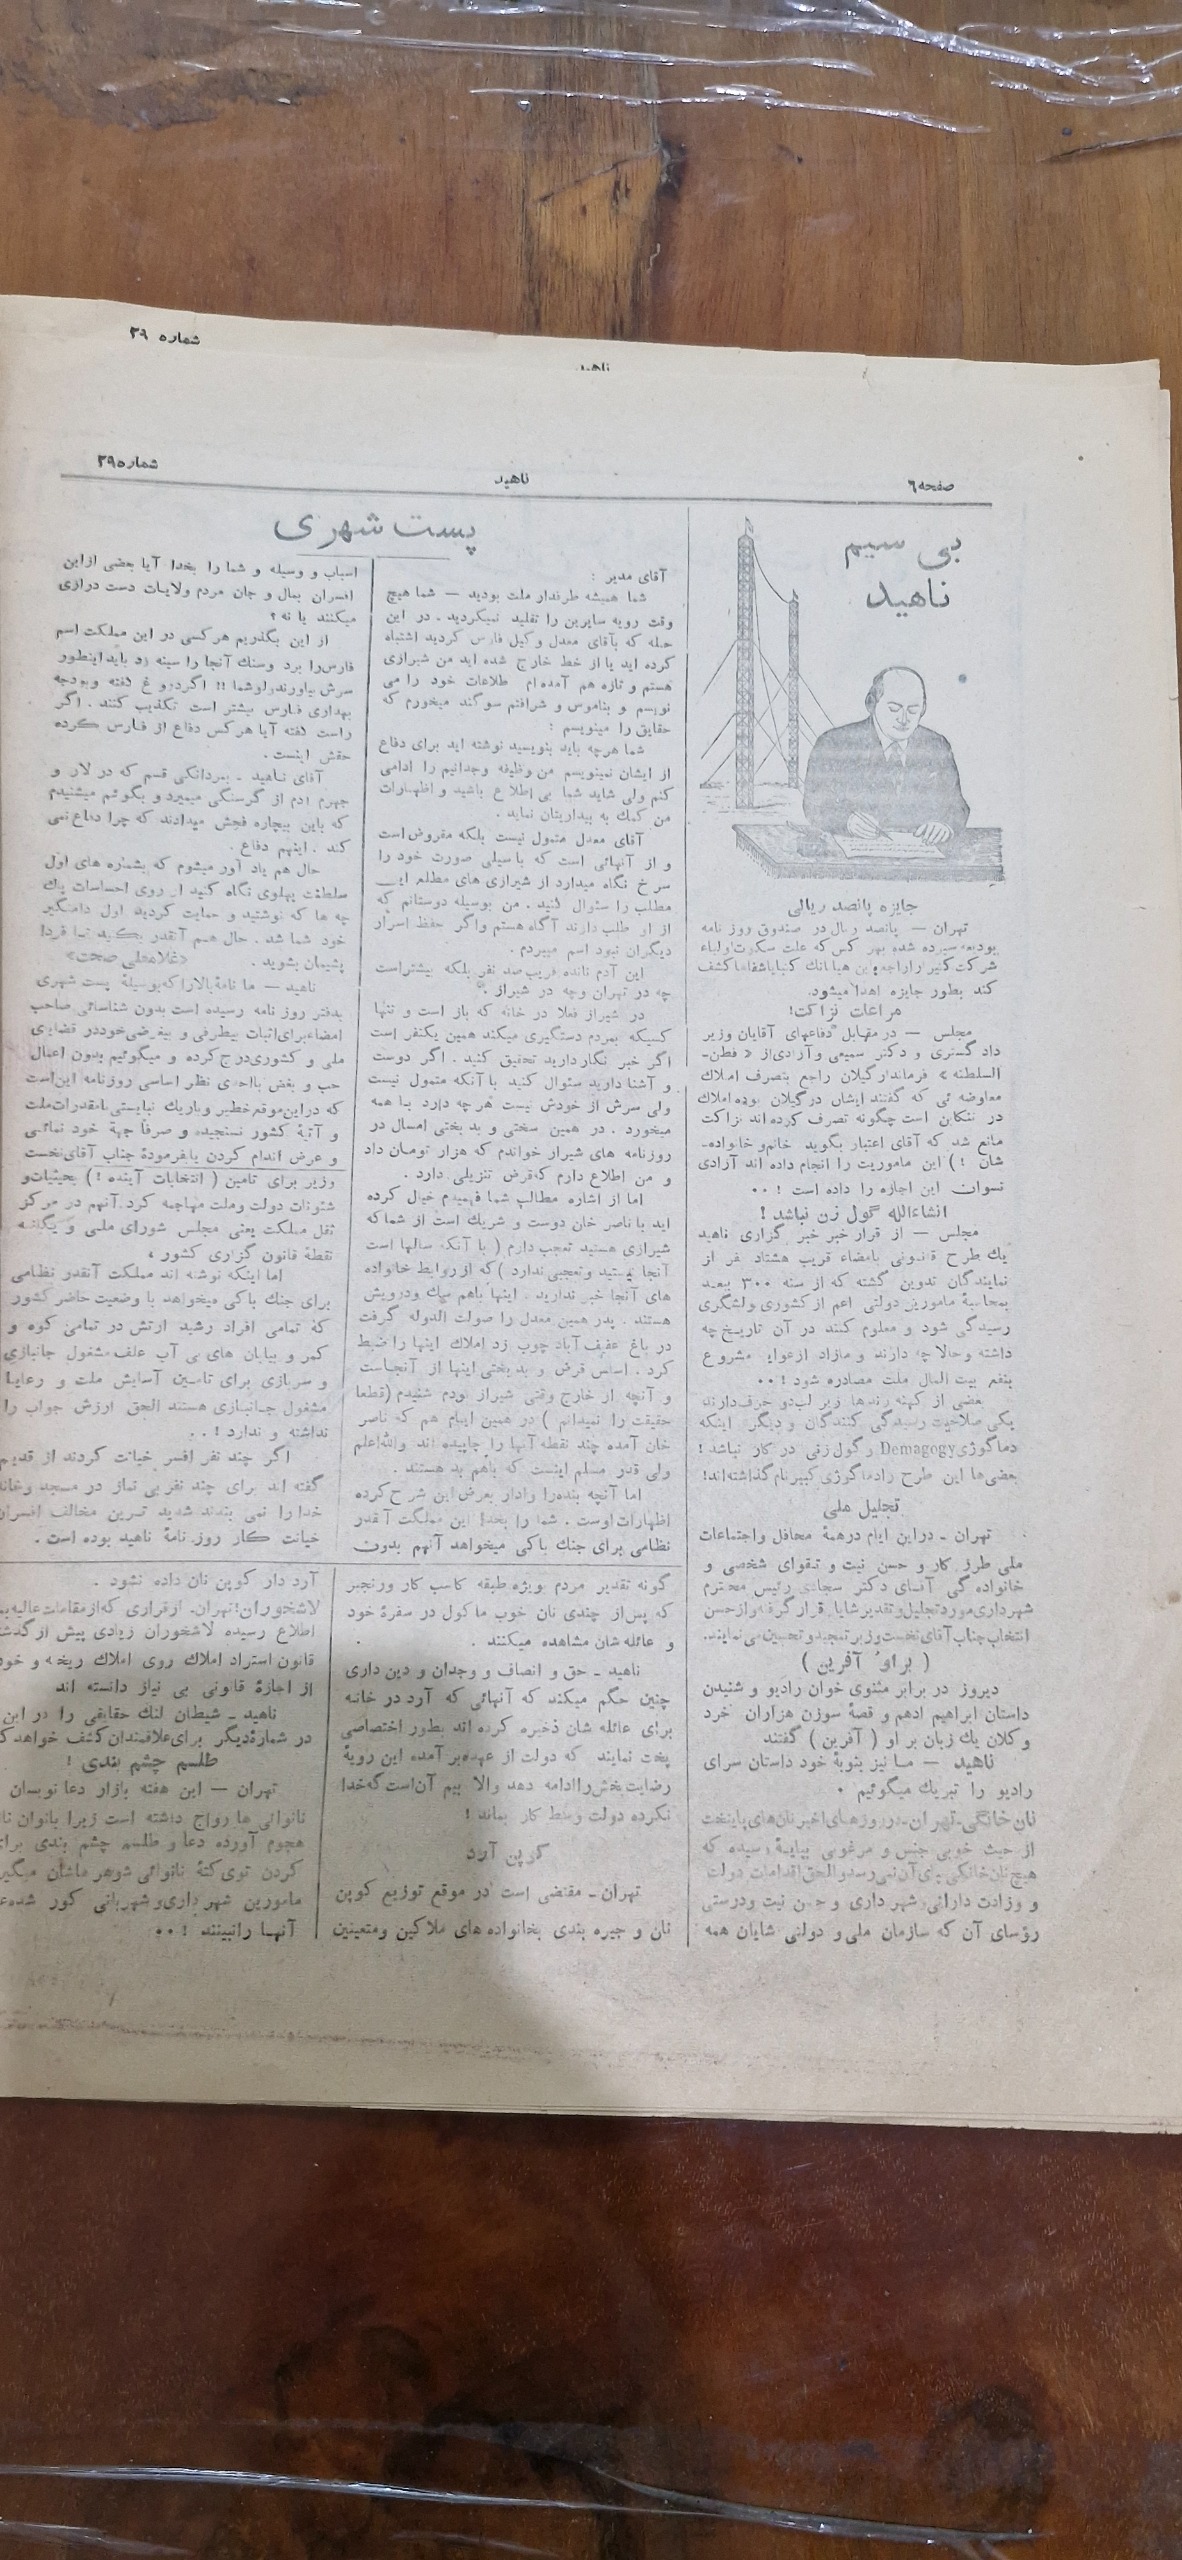 شماره ۳۹
ناهید
صفحه ۶
ناهید
شماره ۳۹
بی سیم
ناهید
جایزه پانصد ریالی
تهران — پانصد ریال در صندوق روز نامه
بودیعه سپرده شده بهر کس که علت سکوت اولیاء
کند بطور جایزه اهدا میشود.
مراعات نزاکت!
مجلس — در مقابل دفاعهای آقایان وزیر
دادگستری و دکتر سمیعی و آزادی از « فطن-
السلطنه » فرماندار گیلان راجع بتصرف املاك
معاوضه ئی که گفتند ایشان در گیلان بوده املاك
در تنکابن است چگونه تصرف کرده اند نزاکت
مانع شد که آقای اعتبار بگوید خانم و خانواده-
شان !) این ماموریت را انجام داده اند آزادی
نسوان این اجازه را داده است !۰۰
انشاءالله گول زن نباشد !
مجلس — از قرار خبر خبر گزاری ناهید
یك طرح قانونی بامضاء قریب هشتاد نفر از
نمایندگان تدوین گشته که از سنه ۳۰۰ ببعد
بمحاسبهٔ مامورین دولتی اعم از کشوری ولشگری
رسیدگی شود و معلوم کنند در آن تاریخ چه
داشته و حالا چه دارند و مازاد از عواید مشروع
بنفع بیت المال ملت مصادره شود !۰۰
بعضی از کهنه رندها زیر لب دو حرف دارند
یکی صلاحیت رسیدگی کنندگان و دیگری اینکه
دماگوژی Demagogy و گول زنی در کار نباشد !
بعضی ها این طرح را دماگوژی کبیر نام گذاشته اند!
تجلیل ملی
تهران - در این ایام در همهٔ محافل و اجتماعات
ملی طرز کار و حسن نیت و تقوای شخصی و
خانواده گی آقای دکتر سجادی رئیس محترم
شهرداری مورد تجلیل و تقدیر شایان قرار گرفته و از حسن
انتخاب جناب آقای نخست وزیر تمجید و تحسین می نمایند.
( براو آفرین )
دیروز در برابر مثنوی خوان رادیو و شنیدن
داستان ابراهیم ادهم و قصهٔ سوزن هزاران خرد
و کلان یك زبان بر او ( آفرین ) گفتند
ناهید — ما نیز بنوبهٔ خود داستان سرای
رادیو را تبریك میگوئیم .
نان خانگی - تهران - در روزهای اخیر نان های پایتخت
از حیث خوبی جنس و مرغوبی بپایهٔ رسیده که
هیچ نان خانگی بپای آن نمی رسد و الحق اقدامات دولت
و وزارت دارائی و شهرداری و حسن نیت و درستی
رؤسای آن که سازمان ملی و دولتی شایان همه
پست شهری
آقای مدیر :
شما همیشه طرفدار ملت بودید — شما هیچ
وقت رویه سایرین را تقلید نمیکردید . در این
حمله که بآقای معدل وکیل فارس کردید اشتباه
کرده اید یا از خط خارج شده اید من شیرازی
هستم و تازه هم آمده ام اطلاعات خود را می
نویسم و بناموس و شرافتم سوگند میخورم که
حقایق را مینویسم :
شما هرچه باید بنویسید نوشته اید برای دفاع
از ایشان نمینویسم من وظیفه وجدانیم را ادامی
کنم ولی شاید شما بی اطلاع باشید و اظهارات
من کمك به بیداریتان نماید .
آقای معدل متمول نیست بلکه مقروض است
و از آنهائی است که باسیلی صورت خود را
سرخ نگاه میدارد از شیرازی های مطلع این
مطلب را سئوال کنید . من بوسیله دوستانم که
از او طلب دارند آگاه هستم واگر حفظ اسرار
دیگران نبود اسم میبردم .
این آدم نانده قریب صد نفر بلکه بیشتر است
چه در تهران وچه در شیراز .
در شیراز فعلا در خانه که باز است و تنها
کسیکه بمردم دستگیری میکند همین یکنفر است
اگر خبر نگار دارید تحقیق کنید . اگر دوست
و آشنا دارید سئوال کنید با آنکه متمول نیست
ولی سرش از خودش نیست هر چه دارد با همه
میخورد . در همین سختی و بدبختی امسال در
روزنامه های شیراز خواندم که هزار تومان داد
و من اطلاع دارم که قرض تنزیلی دارد .
اما از اشاره مطالب شما فهمیدم خیال کرده
اید با ناصر خان دوست و شریك است از شما که
شیرازی هستید تعجب دارم ( با آنکه سالها است
آنجا نیستید و تعجبی ندارد ) که از روابط خانواده
های آنجا خبر ندارید . اینها باهم سك و درویش
هستند . پدر همین معدل را صولت الدوله گرفت
در باغ عفیف آباد چوب زد املاك اینها را ضبط
کرد . اساس قرض و بدبختی اینها از آنجاست
و آنچه از خارج وقتی شیراز بودم شنیدم (قطعا
حقیقت را نمیدانم ) در همین ایام هم که ناصر
خان آمده چند نقطه آنها را چاپیده اند واللهاعلم
ولی قدر مسلم اینست که باهم بد هستند .
اما آنچه بنده را وادار بعرض این شرح کرده
اظهارات اوست . شما را بخدا این مملکت آنقدر
نظامی برای جنك باکی میخواهد آنهم بدون
اسباب و وسیله و شما را بخدا آیا بعضی از این
افسران بمال و جان مردم ولایات دست درازی
میکنند یا نه ؟
از این بگذریم هرکسی در این مملکت اسم
فارس را برد وسنك آنجا را سینه زد باید اینطور
سرش بیاورند ولو شما !! اگر دروغ گفته و بودجه
بهداری فارس بیشتر است تکذیب کنند . اگر
راست گفته آیا هرکس دفاع از فارس کرده
حقش اینست .
آقای ناهید - بمردانگی قسم که در لار و
جهرم آدم از گرسنگی میمیرد و بگوئیم میشنیدم
که باین بیچاره فحش میدادند که چرا دفاع نمی
کند . اینهم دفاع .
حال هم یاد آور میشوم که بشماره های اول
سلطنت پهلوی نگاه کنید از روی احساسات پاك
چه ها که نوشتید و حمایت کردید اول دامنگیر
خود شما شد . حال هم آنقدر بکنید تا فردا
پشیمان بشوید .
«غلامعلی صحت»
ناهید — ما نامهٔ بالا را که بوسیلهٔ پست شهری
بدفتر روزنامه رسیده است بدون شناسائی صاحب
امضاء برای اثبات بیطرفی و بیغرضی خود در قضایای
ملی و کشوری درج کرده و میگوئیم بدون اعمال
حب و بغض با احدی نظر اساسی روزنامه این است
که در این موقع خطیر و باریك نبایستی با مقدرات ملت
و آتیهٔ کشور نسنجیده و صرفاً جهة خود نمائی
و عرض اندام کردن یا بفرمودهٔ جناب آقای نخست
وزیر برای تامین ( انتخابات آینده ! ) بحیثیات و
شئونات دولت وملت مهاجمه کرد. آنهم در مرکز
ثقل مملکت یعنی مجلس شورای ملی و یگانه
نقطهٔ قانون گزاری کشور ،
اما اینکه نوشته اند مملکت آنقدر نظامی
برای جنك باکی میخواهد با وضعیت حاضر کشور
که تمامی افراد رشید ارتش در تمامی کوه و
کمر و بیابان های بی آب علف مشغول جانبازی
و سربازی برای تامین آسایش ملت و رعایا
مشغول جانبازی هستند الحق ارزش جواب را
نداشته و ندارد !..
اگر چند نفر افسر خیانت کردند از قدیم
گفته اند برای چند نفر بی نماز در مسجد و خانه
خدا را نمی بندند شدید ترین مخالف افسران
خیانت کار روزنامهٔ ناهید بوده است .
گونه تقدیر مردم بویژه طبقه کاسب کار و رنجبر
که پس از چندی نان خوب ماکول در سفرهٔ خود
و عائله شان مشاهده میکنند .
ناهید - حق و انصاف و وجدان و دین داری
چنین حکم میکند که آنهائی که آرد در خانه
برای عائله شان ذخیره کرده اند بطور اختصاصی
پخت نمایند که دولت از عهده بر آمده این رویهٔ
رضایت بخش را ادامه دهد والا بیم آن است که خدا
نکرده دولت وسط کار بماند !
کوپن آرد
تهران - مقتضی است در موقع توزیع کوپن
نان و جیره بندی بخانواده های ملاکین و متعینین
آرد دار کوپن نان داده نشود .
لاشخوران! تهران. از قراری که از مقامات عالیه
اطلاع رسیده لاشخوران زیادی پیش از
قانون استرداد املاك روی املاك ریخته و
از اجازهٔ قانونی بی نیاز دانسته اند
ناهید - شیطان لنك حقایقی را در این
در شمارهٔ دیگر برای علاقمندان کشف خواهد
طلسم چشم بندی !
تهران — این هفته بازار دعا نویسان
نانوائی ها رواج داشته است زیرا بانوان
هجوم آورده دعا و طلسم چشم بندی
کردن توی کتهٔ نانوائی شوهر هاشان
مامورین شهرداری و شهربانی کور
آنها را نبینند !۰۰